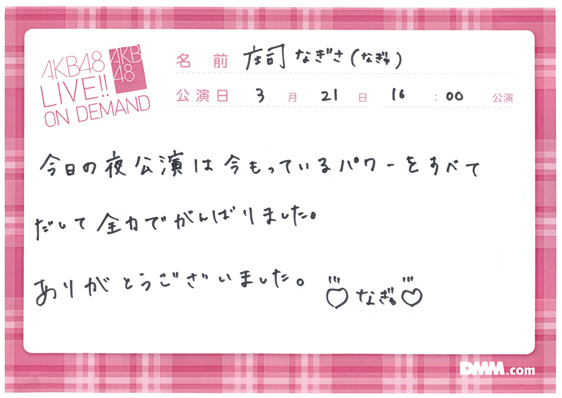 AKB48
LIVE!!
ON DEMAND
AKB
48
名 前 庄司 なぎさ(なぎゅ)
公演日 3 月 21 日 16 : 00 公演
今日の夜公演は今もっているパワーをすべて
だして全力でがんばりました。
ありがとうございました。 ♡なぎゅ♡
DMM.com